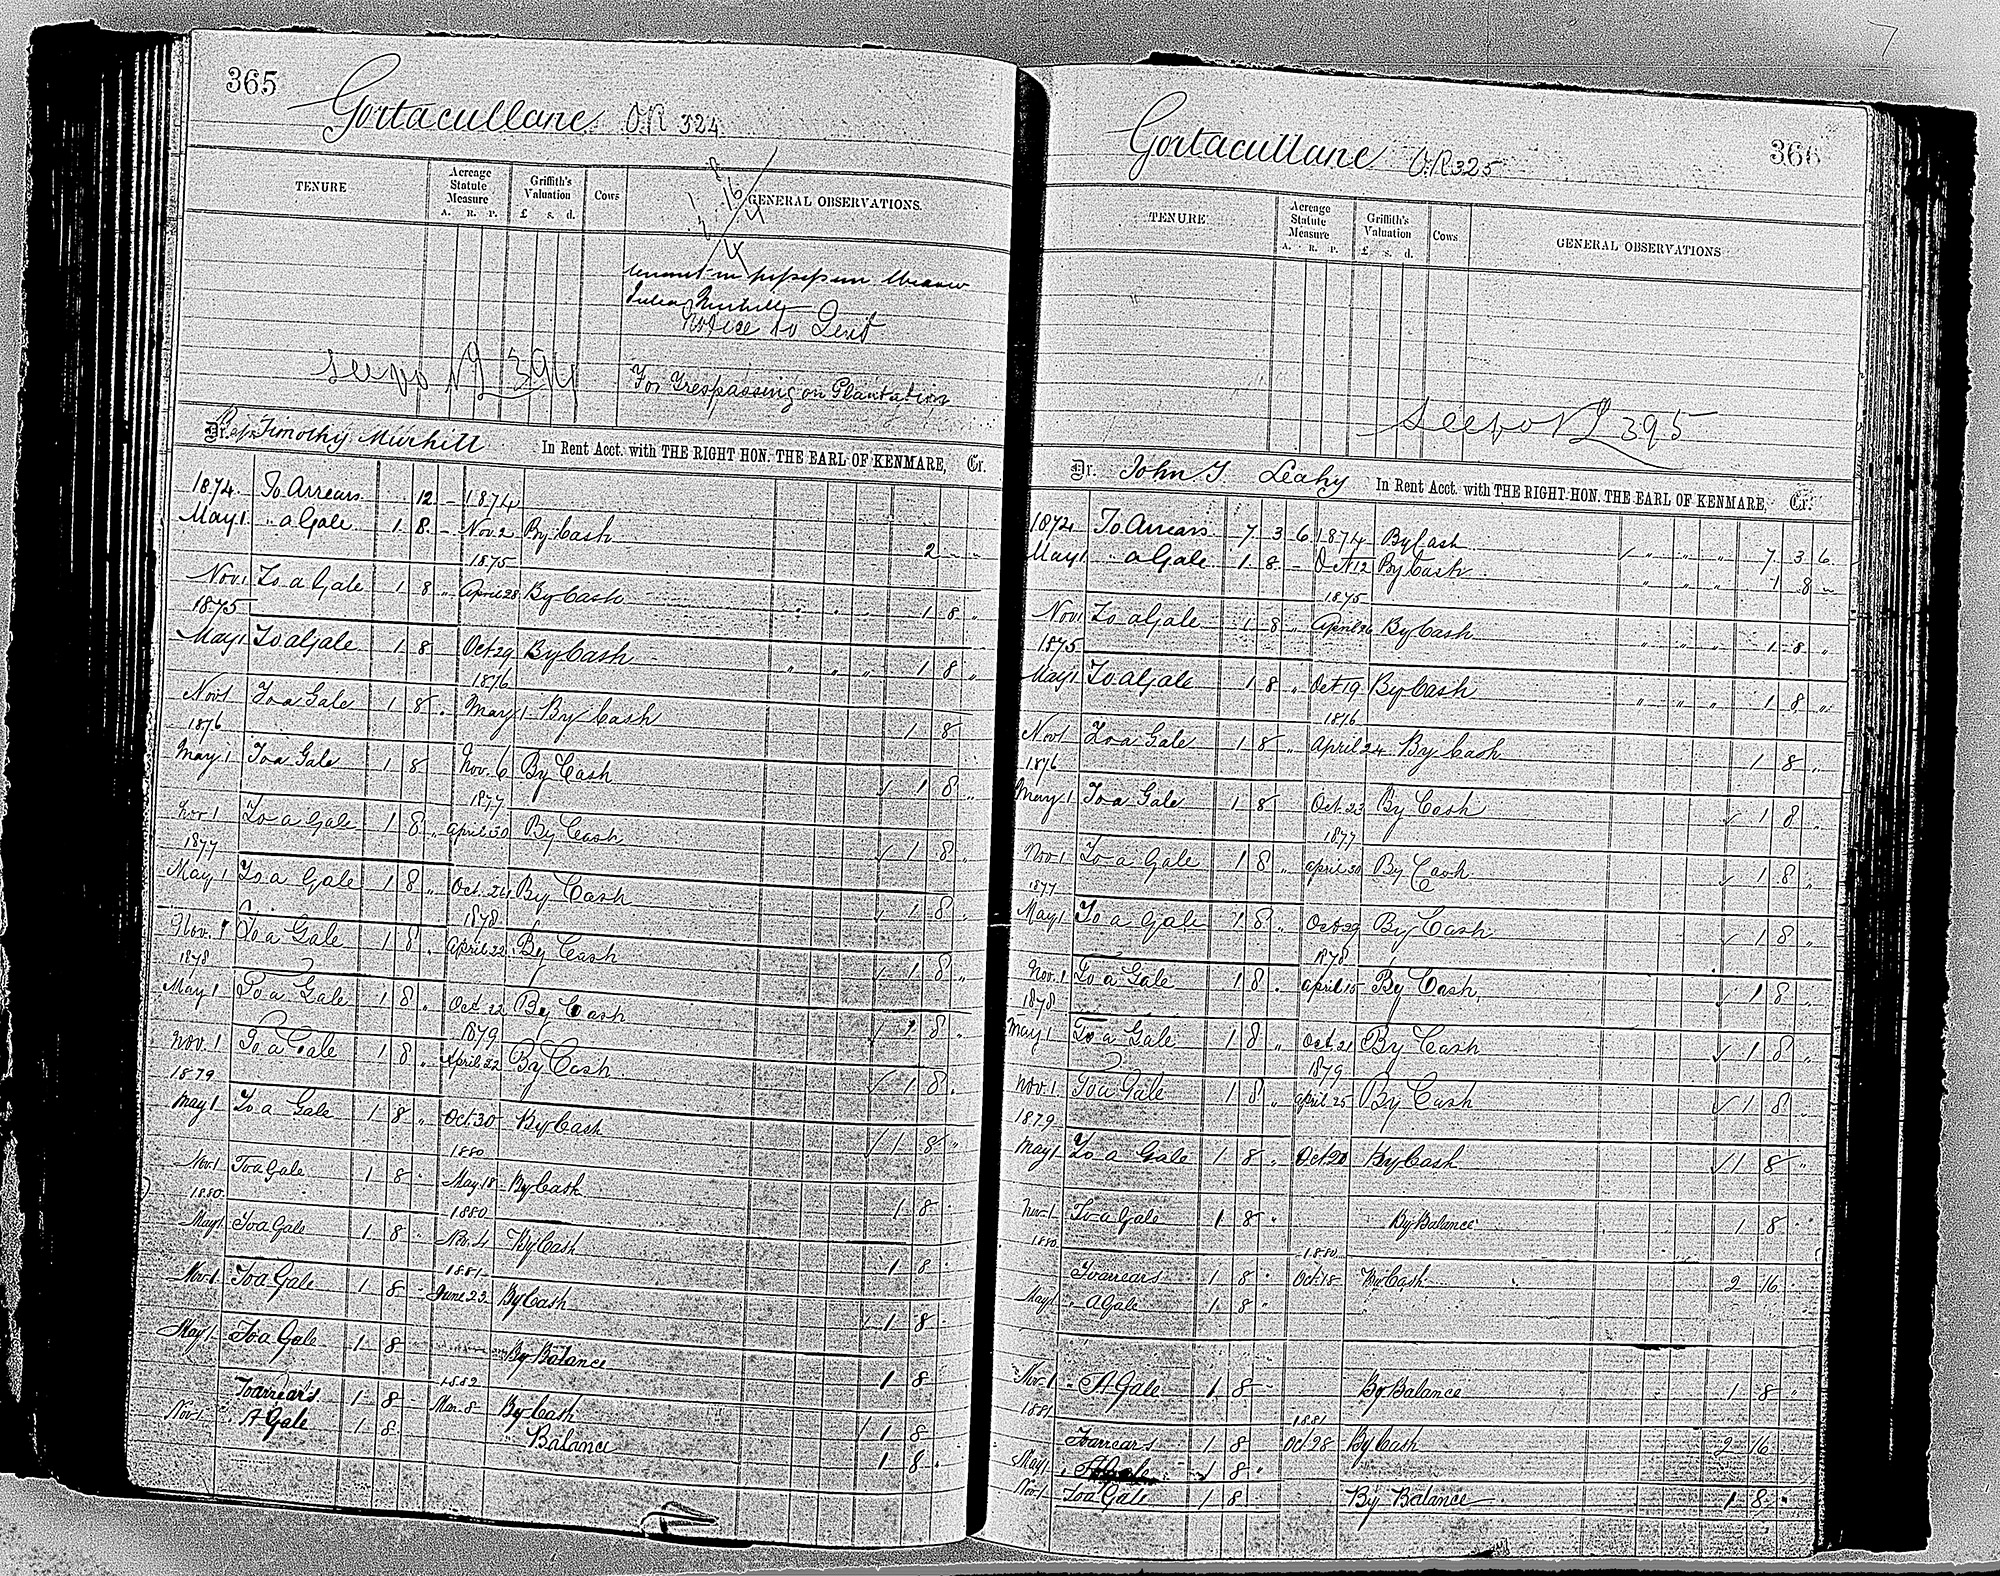 365
Gortacullane O.R 324
TENURE
Acreage Statute Measure
A. R. P.
Griffith's Valuation
£ s. d.
Cows
GENERAL OBSERVATIONS.
tenant in
Notice to Quit
For Trespassing on Plantation
Dr. Reps Timothy Murhill In Rent Acct. with THE RIGHT HON. THE EARL OF KENMARE, Cr.
1874. To Arrears 12 - 1874
May 1. " a Gale 1 8 - Nov. 2 By Cash 2 - -
1875
Nov 1 To a Gale 1 8 " April 28 By Cash " " " 1 8 "
1875
May 1 To a Gale 1 8 Oct 29 By Cash " " " 1 8 "
1876
Nov 1 To a Gale 1 8 . May 1 By Cash 1 8
1876
May 1 To a Gale 1 8 Nov. 6 By Cash ✓ 1 8 "
1877
Nov 1 To a Gale 1 8 " April 30 By Cash ✓ 1 8 "
1877
May 1 To a Gale 1 8 " Oct. 24 By Cash ✓ 1 8 "
1878
Nov. 1 To a Gale 1 8 . April 22 By Cash ✓ 1 8 "
1878
May 1 To a Gale 1 8 " Oct. 22 By Cash ✓ 1 8 "
1879
Nov. 1 To a Gale 1 8 " April 22 By Cash ✓ 1 8 .
1879
May 1 To a Gale 1 8 " Oct. 30 By Cash ✓ 1 8 "
1880
Nov. 1 To a Gale 1 8 May 18 By Cash 1 8
1880 1880
May 1 To a Gale 1 8 Nov. 4 By Cash 1 8
1881
Nov. 1 To a Gale 1 8 June 22 By Cash ✓ 1 8
May 1 To a Gale 1 8 By Balance 1 8
1882
To arrears 1 8 Mar. 8 By Cash 1 8
Nov 1 " A Gale 1 8 " Balance 1 8 .
366
Gortacullane O.R 325
TENURE
Acreage Statute Measure
A. R. P.
Griffith's Valuation
£ s. d.
Cows
GENERAL OBSERVATIONS
Dr. John J. Leahy In Rent Acct. with THE RIGHT HON. THE EARL OF KENMARE, Cr.
1874 To Arrears 7 3 6 1874 By Cash ✓ " " " 7 3 6
May 1 " a Gale 1 8 - Oct 12 By Cash " " " 1 8 -
1875
Nov 1 To a Gale 1 8 " April 26 By Cash " " " 1 8 "
1875
May 1 To a Gale 1 8 " Oct 19 By Cash " " " 1 8 "
1876
Nov 1 To a Gale 1 8 " April 24 By Cash 1 8 "
1876
May 1 To a Gale 1 8 Oct. 23 By Cash ✓ 1 8 "
1877
Nov 1 To a Gale 1 8 " April 30 By Cash ✓ 1 8 "
1877
May 1 To a Gale 1 8 " Oct 29 By Cash ✓ 1 8 "
1878
Nov. 1 To a Gale 1 8 . April 15 By Cash ✓ 1 8 "
1878
May 1 To a Gale 1 8 " Oct. 21 By Cash ✓ 1 8 "
1879
Nov. 1 To a Gale 1 8 " April 25 By Cash ✓ 1 8 "
1879
May 1 To a Gale 1 8 " Oct 20 By Cash ✓ 1 8 "
Nov 1 To a Gale 1 8 " By Balance 1 8
1880 1880
To arrears 1 8 " Oct. 18 By Cash 2 16
May 1 " A Gale 1 8 "
Nov. 1 " A Gale 1 8 By Balance 1 8 "
1881 1881
To arrears 1 8 Oct 28 By Cash 2 16
May 1 " A Gale 1 8 "
Nov 1 To a Gale 1 8 By Balance 1 8 "